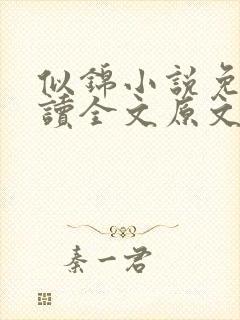 似錦小説免
讀全文原文
秦一君